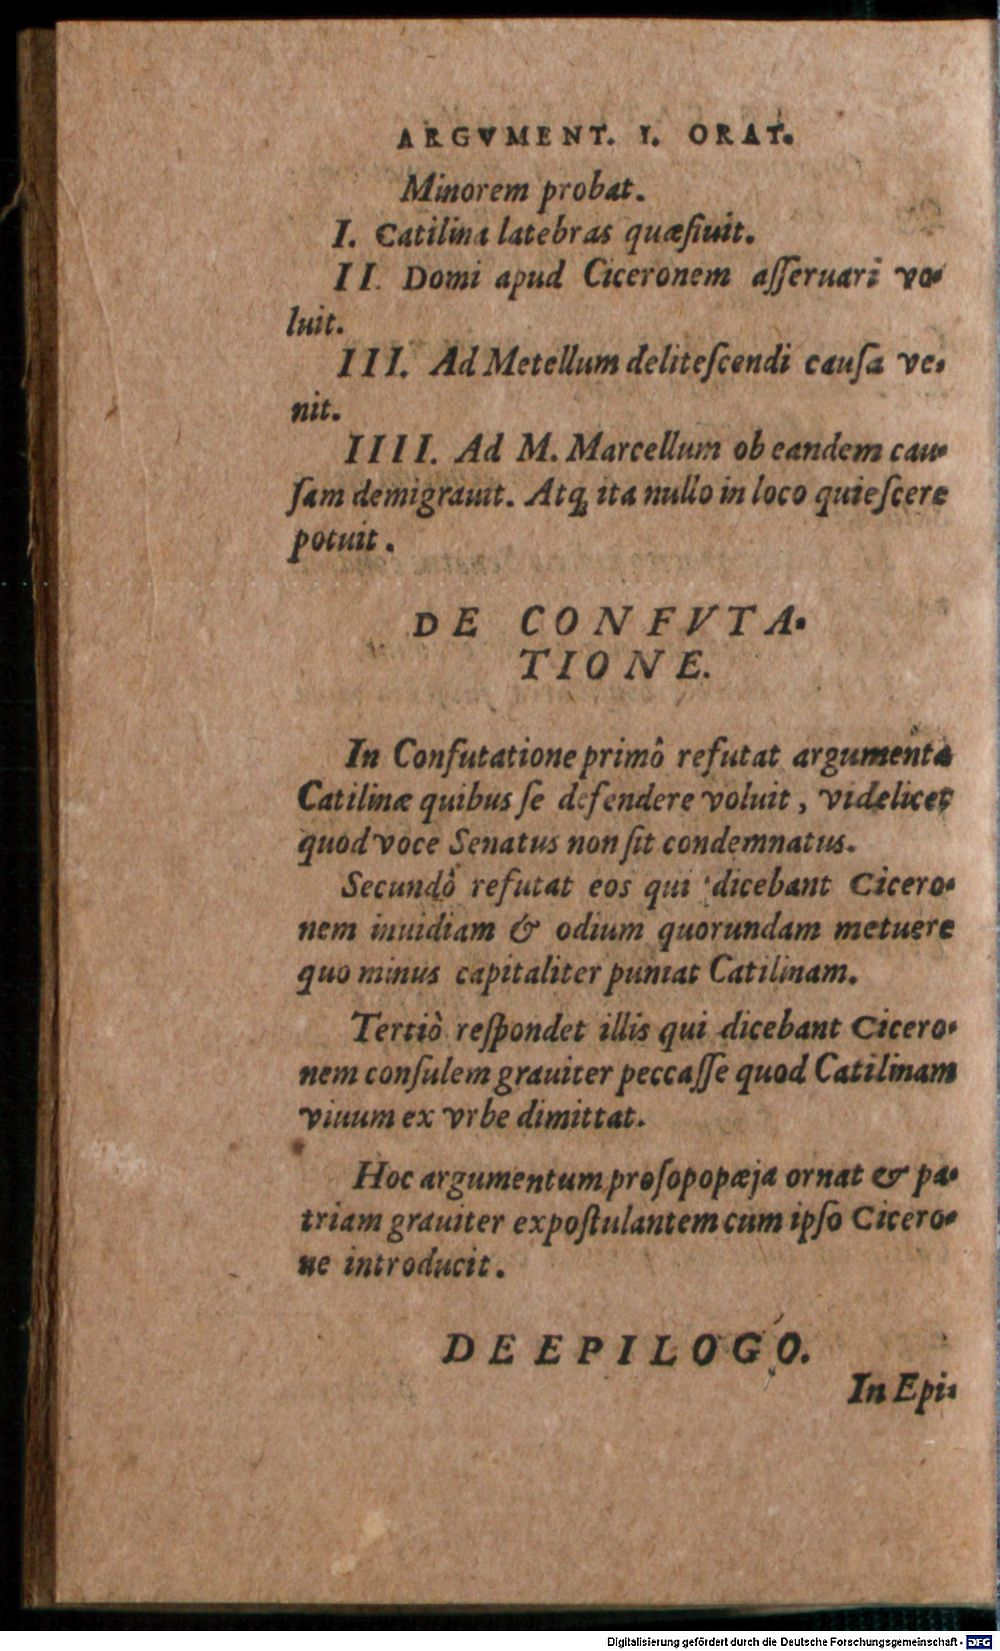 ARGVMENT. I. ORAT.
Minorem probat.
I. Catilina latebras quæſiuit.
II. Domi apud Ciceronem aſſeruari vo-
luit.
III. Ad Metellum deliteſcendi cauſa ve-
nit.
IIII. Ad M. Marcellum ob eandem cau-
ſam demigrauit. Atq́; ita nullo in loco quieſcere
potuit.
DE CONFVTA-
TIONE.
In Confutatione primô refutat argumenta
Catilinæ quibus ſe defendere voluit, videlicet
quod voce Senatus non ſit condemnatus.
Secundô refutat eos qui dicebant Cicero-
nem inuidiam & odium quorundam metuere
quo minus capitaliter puniat Catilinam.
Tertiò reſpondet illis qui dicebant Cicero-
nem conſulem grauiter peccaſſe quod Catilinam
viuum ex vrbe dimittat.
Hoc argumentum proſopopæja ornat & pa-
triam grauiter expoſtulantem cum ipſo Cicero-
ne introducit.
DE EPILOGO.
In Epi-
Digitalisierung gefördert durch die Deutsche Forschungsgemeinschaft - DFG